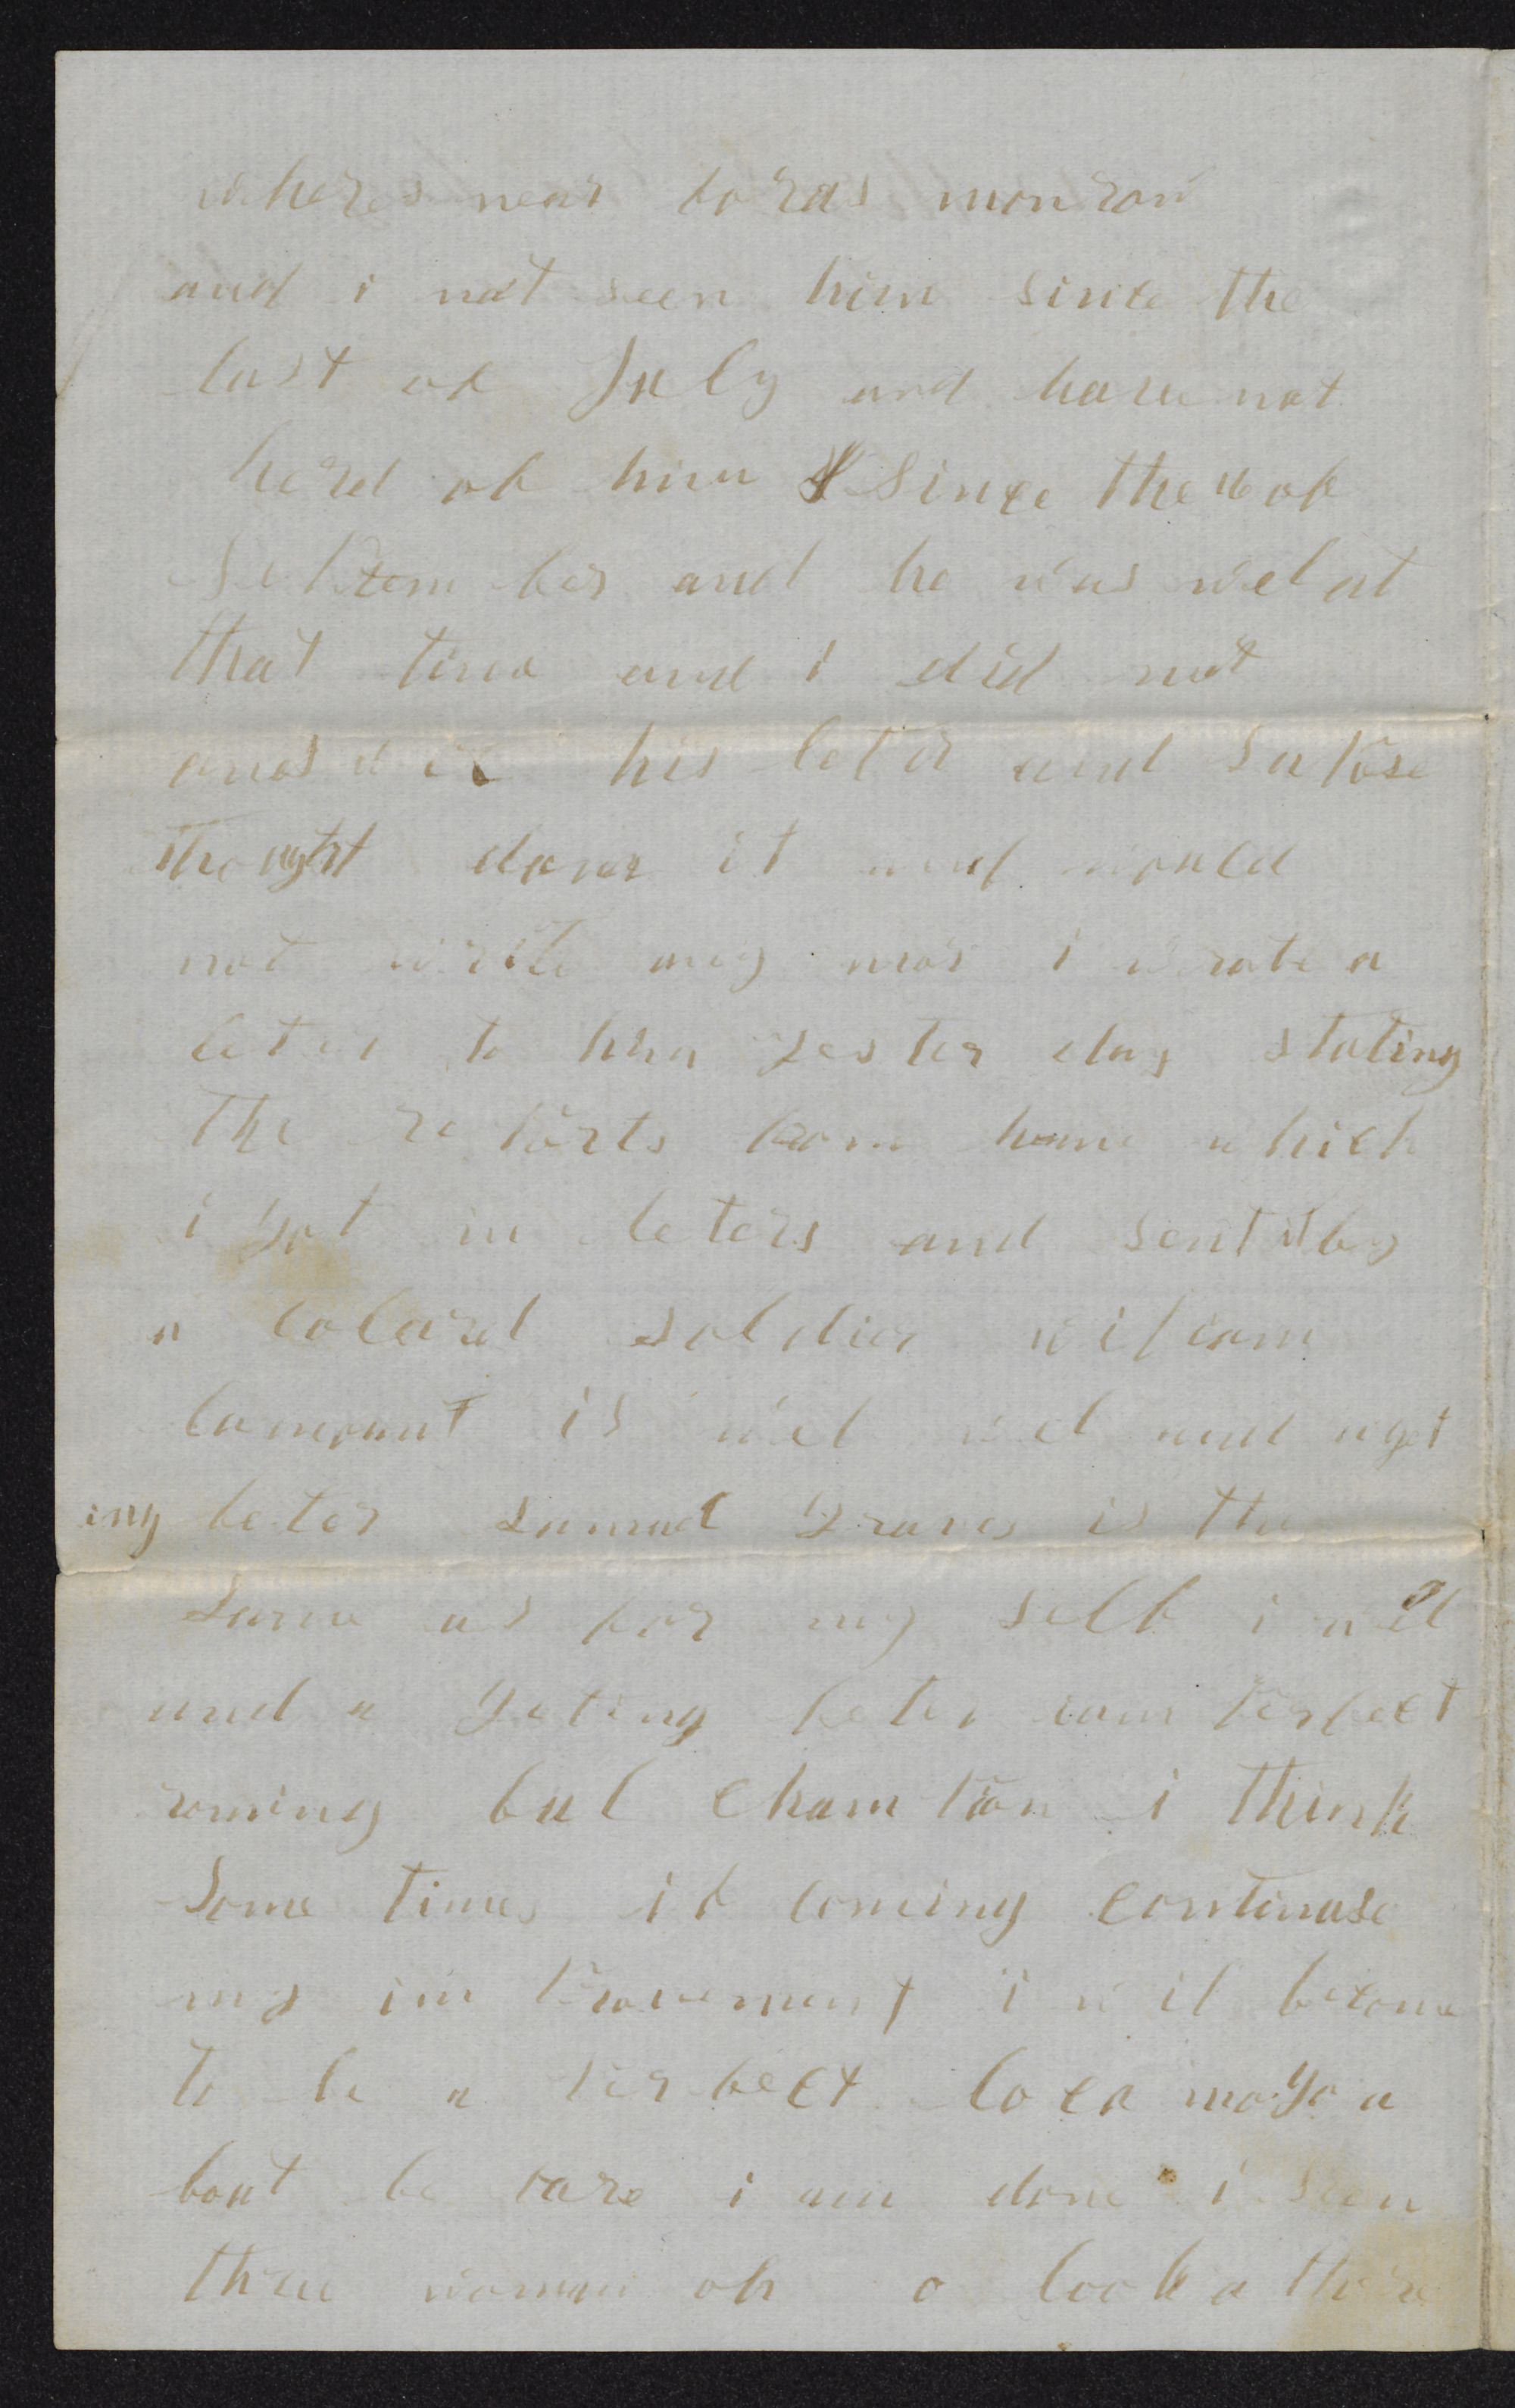 wheres near fords monrow
and i not seen him since the
last of July and have not
herd of him Since the 16 of
Seprember and he was wel at
that time and i did not
answer his leter and supose
thought done it and would
not write my mor i wrote a
leter to him yester day stating
the reports from home which
i got in leters and sent it by
a colard soldier wiliam
is wel wel and a get
ing beter Samuel Graves is the
Same as for my self i wel
and a geting beter iam perfect
roming bul champion i think
Some times if coming continuse
my improvement i wil become
to be a perfect loco moyo a
bout be care i am done i seen
three woman oh o look a there